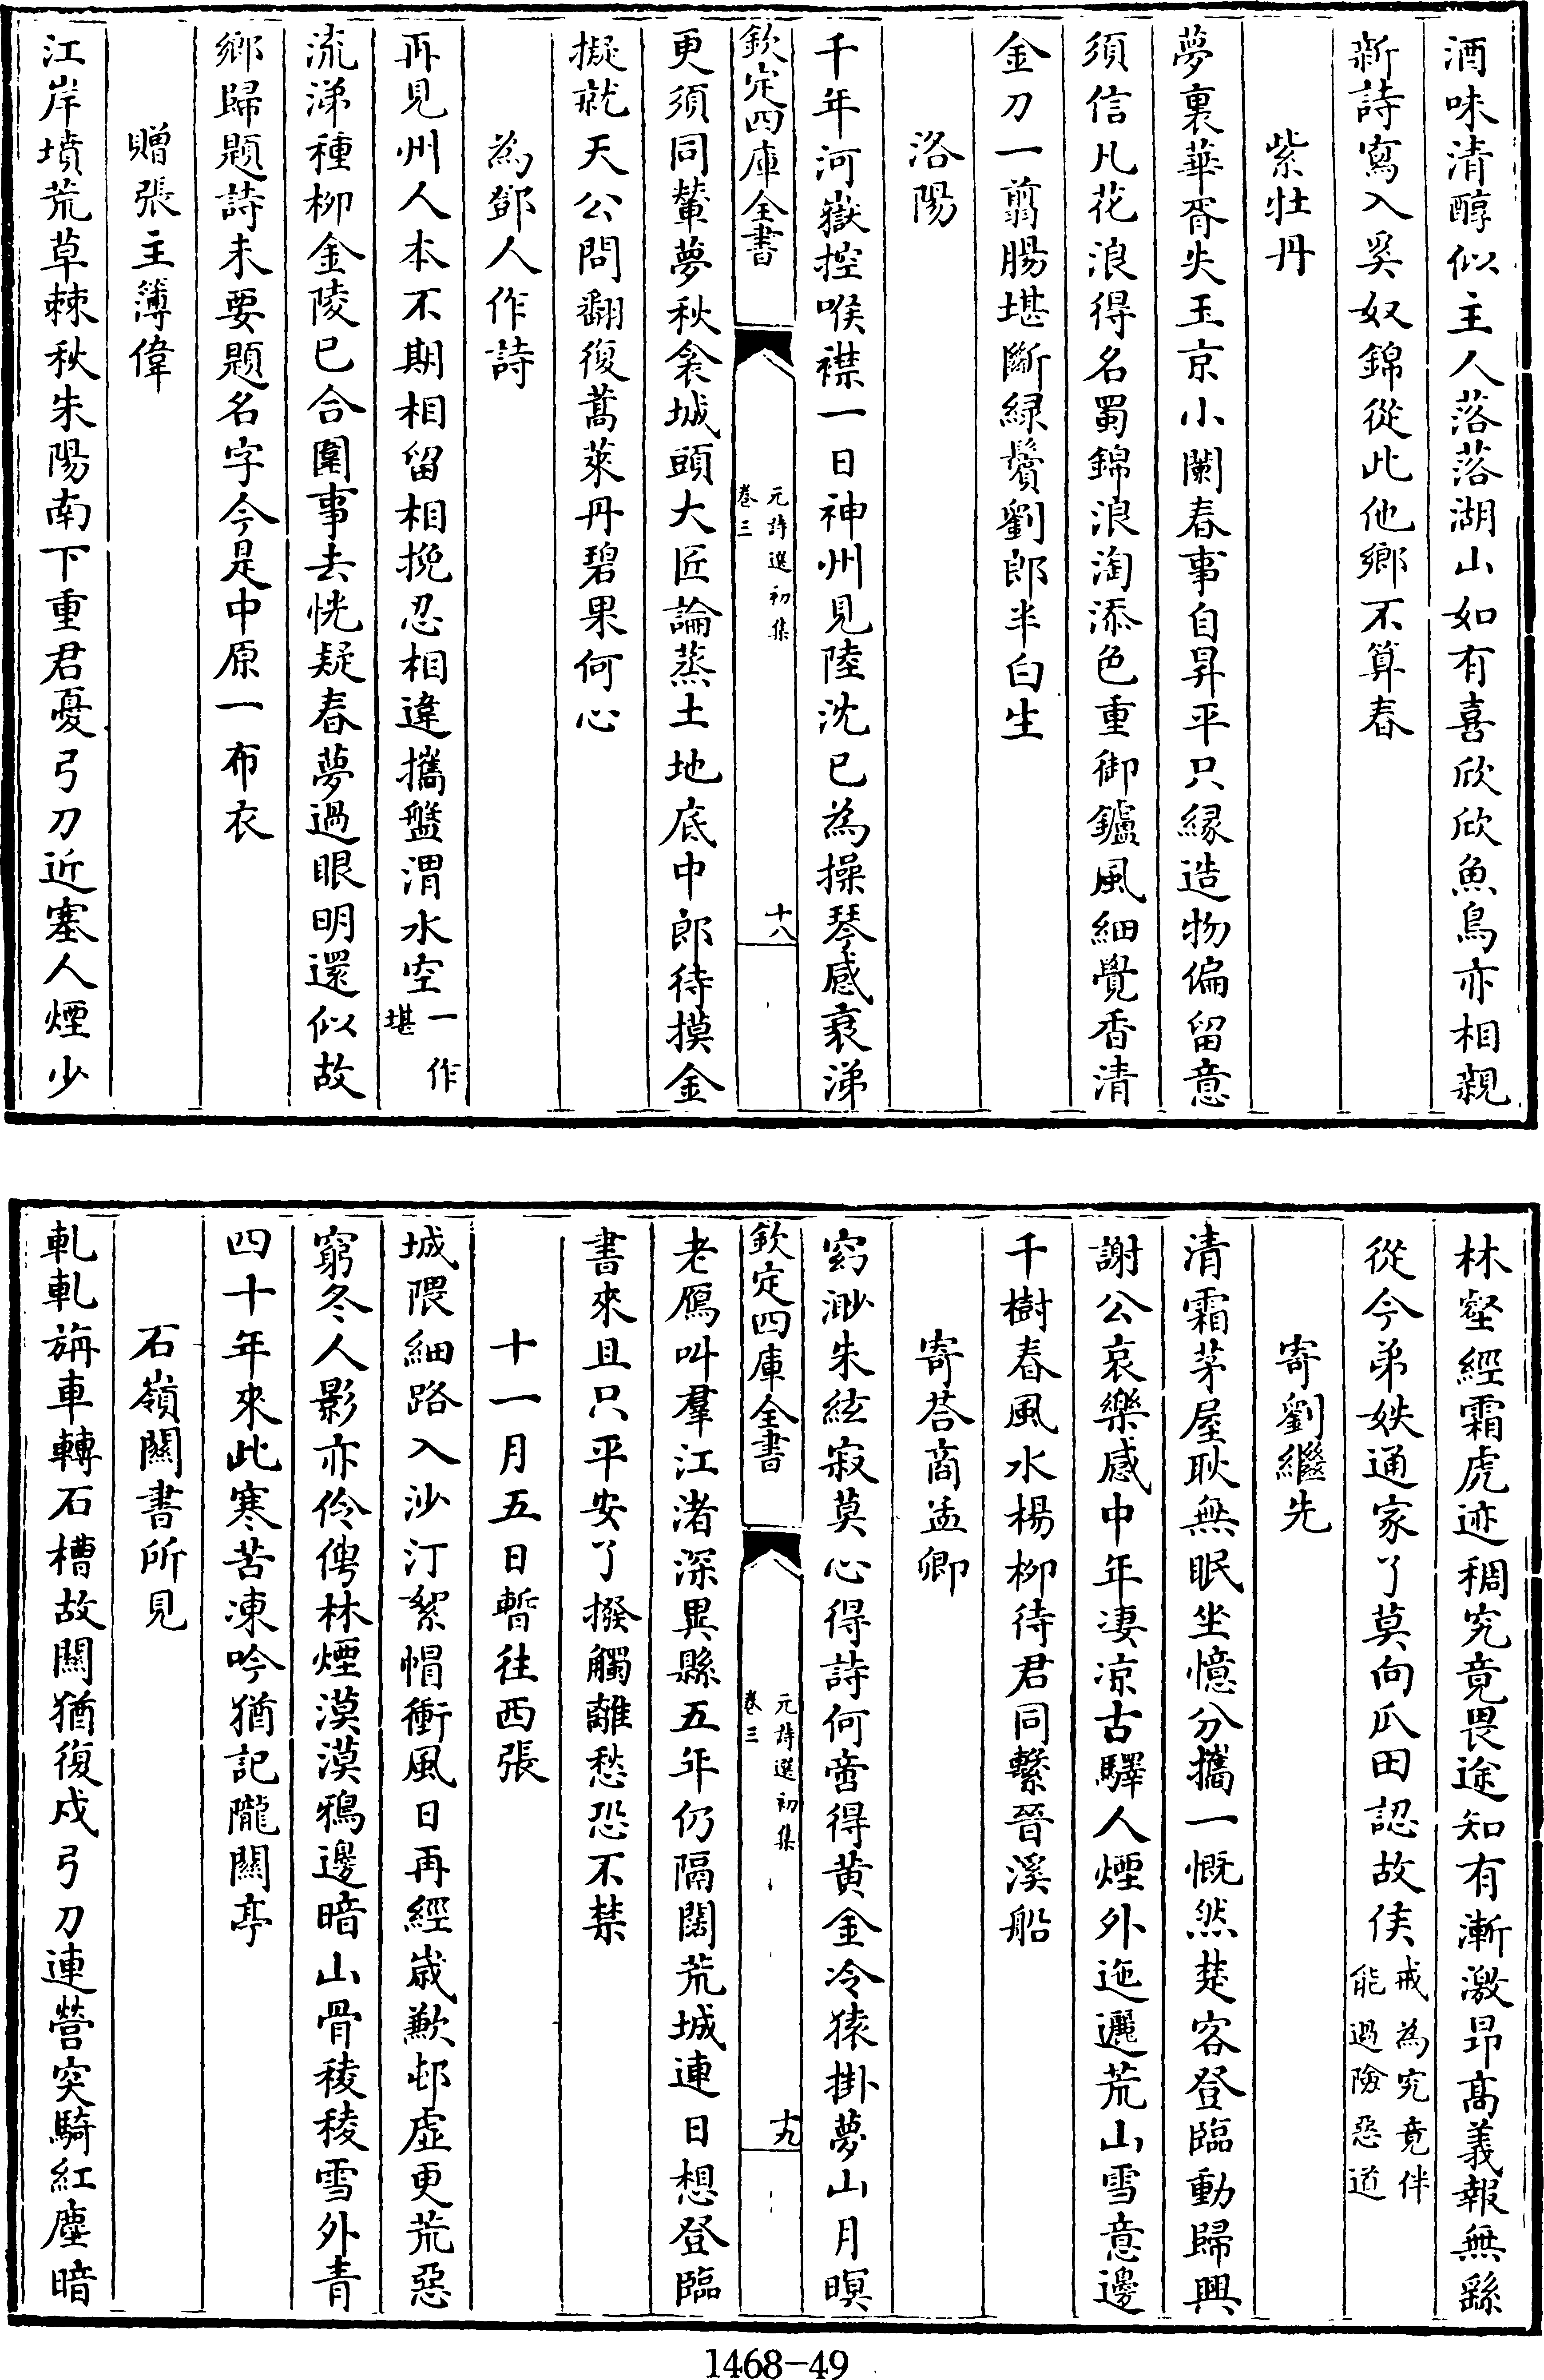 酒味清醇似主人落落湖山如有喜欣欣魚鳥亦相親
新詩寫入奚奴錦從此他鄉不算春
紫牡丹
夢裏華胥失玉京小闌春事自昇平只緣造物偏留意
須信凡花浪得名蜀錦浪淘添色重御鑪風細覺香清
金刀一翦腸堪斷緑鬢劉郎半白生
洛陽
千年河嶽控喉襟一日神州見陸沈已為操琴感衰涕
欽定四庫全書
元詩選初集
卷三
十八
更須同輦夢秋衾城頭大匠論蒸土地底中郎待摸金
擬就天公問翻復蒿萊丹碧果何心
為鄧人作詩
再見州人本不期相留相挽忍相違攜盤渭水空一作堪
流涕種柳金陵已合圍事去恍疑春夢過眼明還似故
鄉歸題詩未要題名字今是中原一布衣
贈張主簿偉
江岸墳荒草棘秋朱陽南下重君憂弓刀近塞人煙少
林壑經霜虎迹稠究竟畏途知有漸激昂髙義報無繇
從今弟姪通家了莫向瓜田認故侯戒為究竟伴能過險惡道
寄劉繼先
清霜茅屋耿無眠坐憶分攜一慨然楚客登臨動歸興
謝公哀樂感中年凄凉古驛人煙外迤邐荒山雪意邊
千樹春風水楊柳待君同繫晉溪船
寄荅商孟卿
窈渺朱絃寂莫心得詩何啻得黄金冷猿掛夢山月暝
欽定四庫全書
元詩選初集
卷三
十九
老鴈叫羣江渚深異縣五年仍隔闊荒城連日想登臨
書來且只平安了撥觸離愁恐不禁
十一月五日暫往西張
城隈細路入沙汀絮帽衝風日再經歲歉邨虛更荒惡
窮冬人影亦伶俜林煙漠漠鴉邊暗山骨稜稜雪外青
四十年來此寒苦凍吟猶記隴關亭
石嶺關書所見
軋軋旃車轉石槽故關猶復戍弓刀連營突騎紅塵暗
1468-49